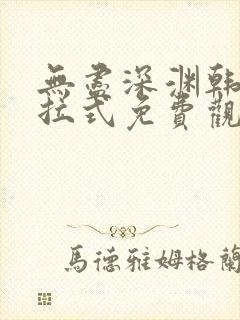 無盡深渊韩
拉式免費觀
馬德雅姆格蘭